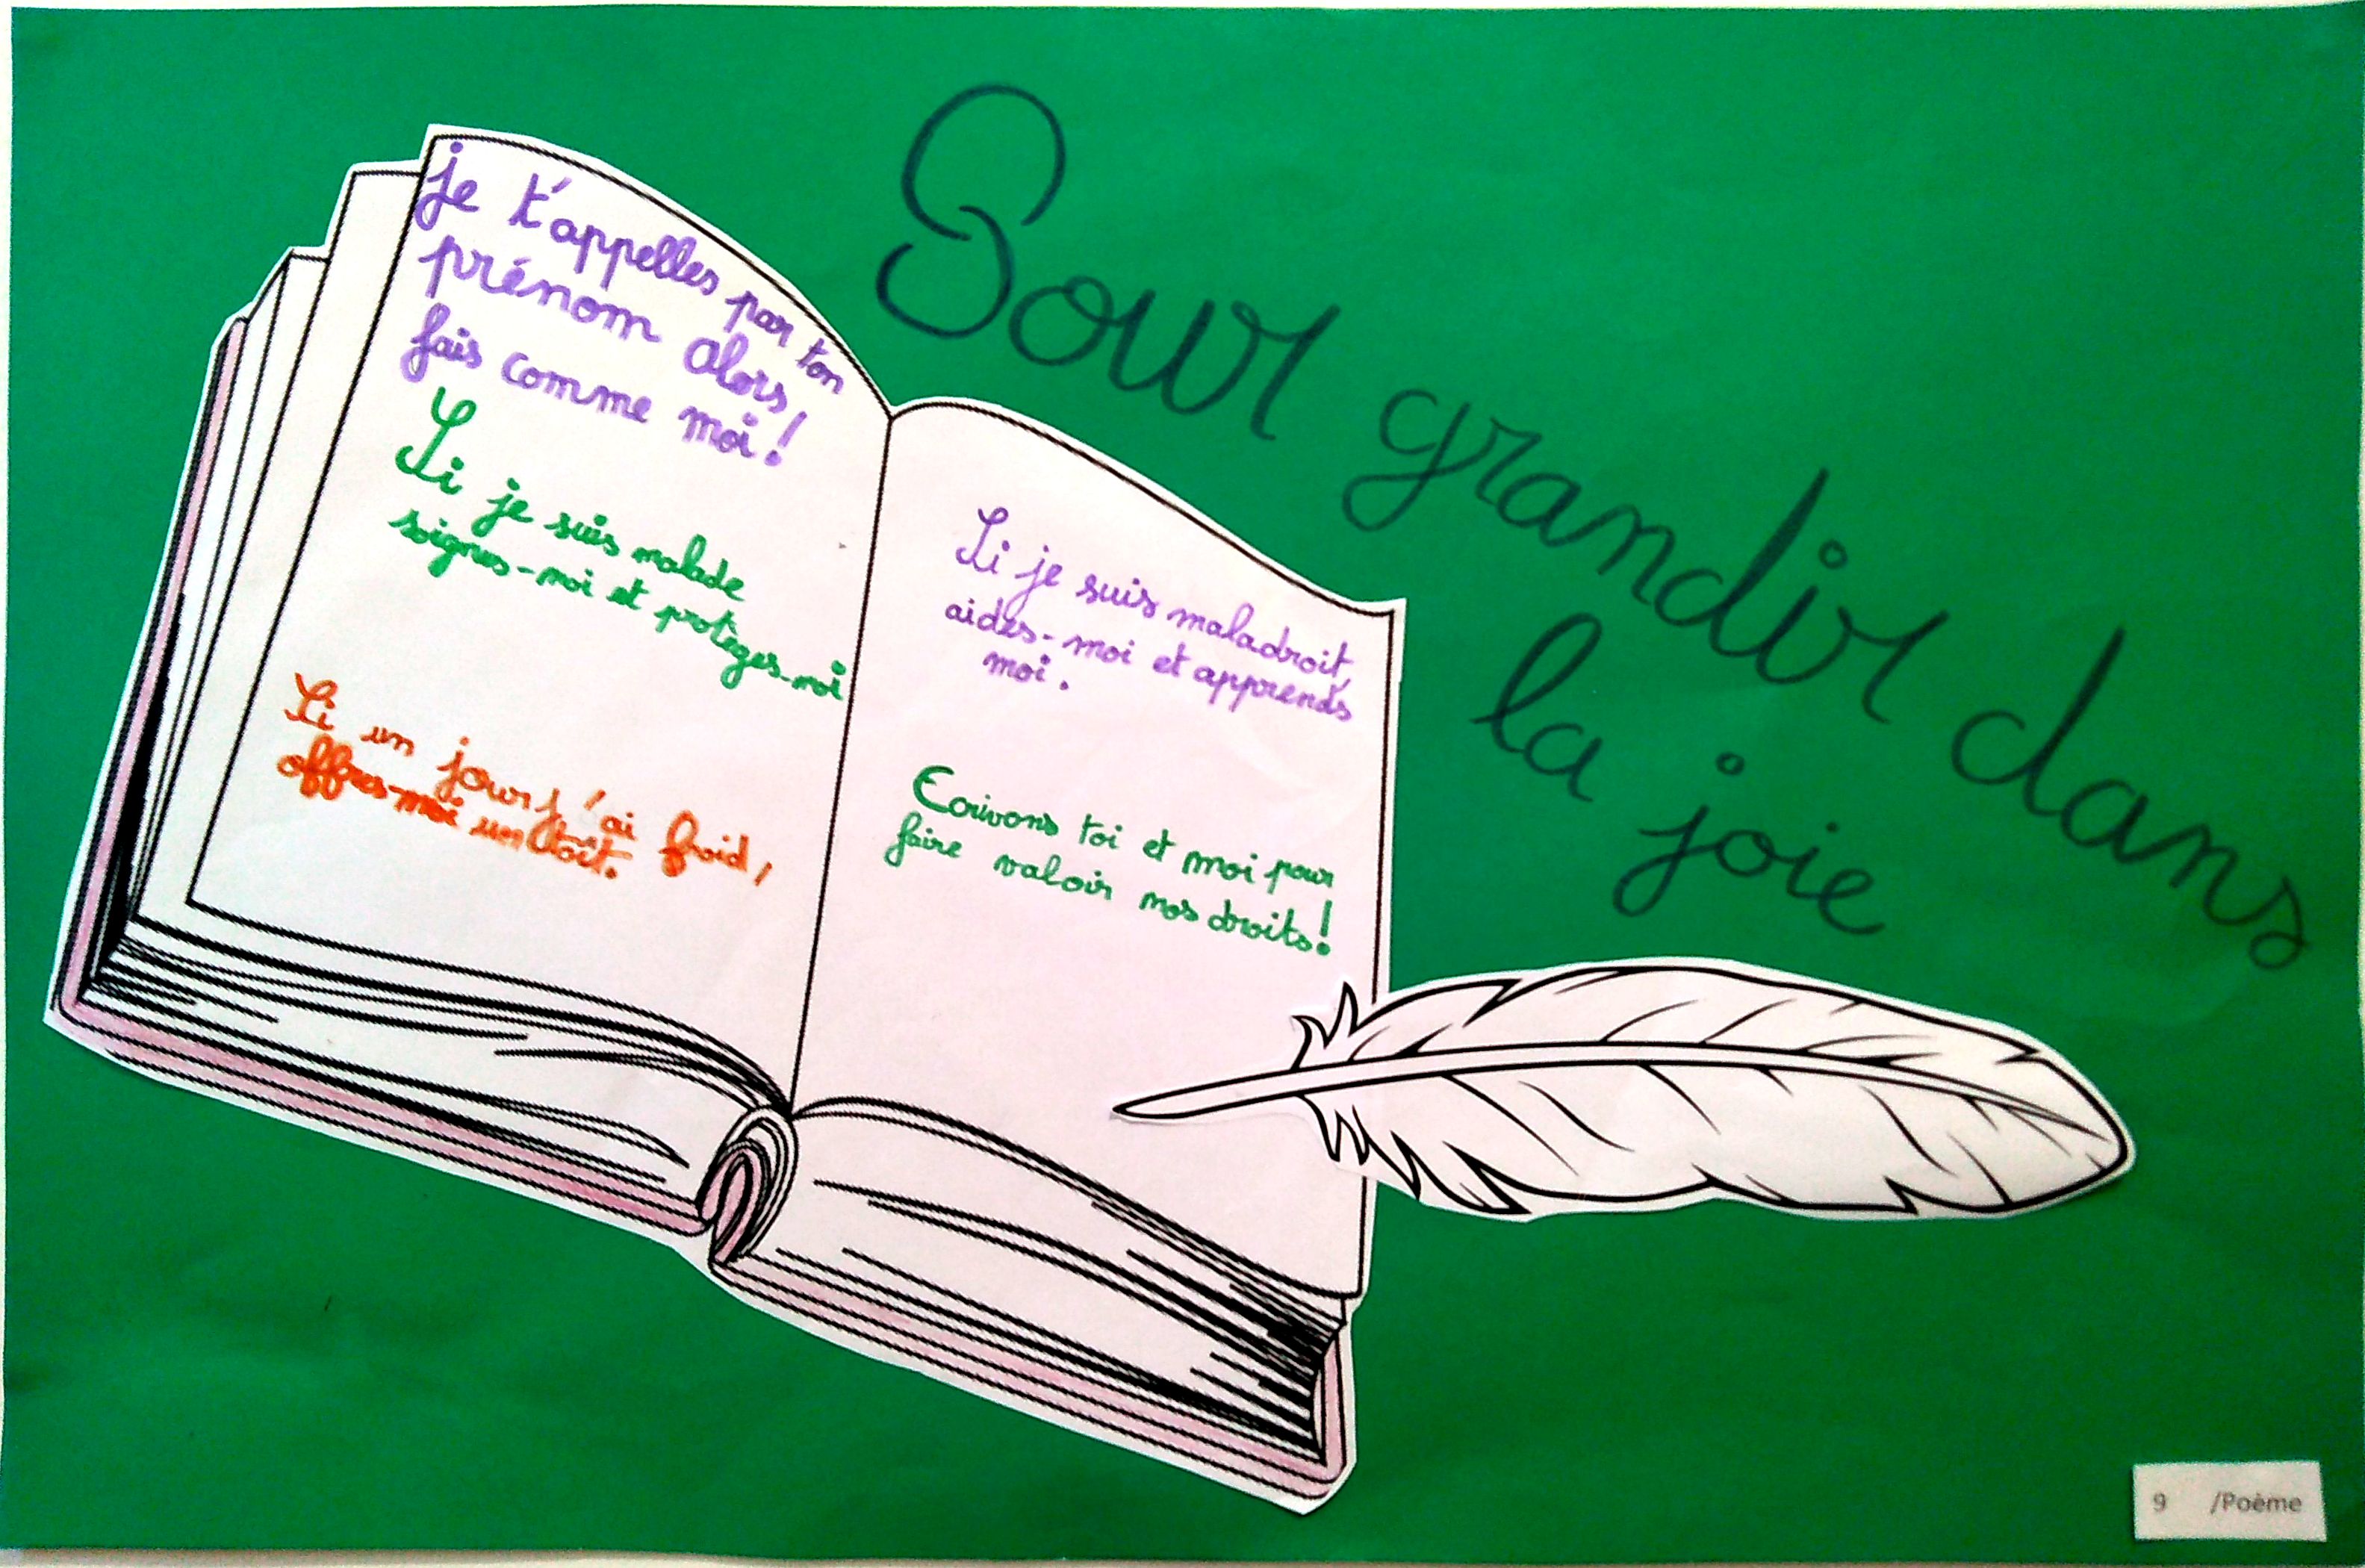 Pour grandir dans
la joie
je t'appelles par ton
prénom alors,
fais comme moi !
Si je suis malade
soignes-moi et protèges-moi
Si un jour j'ai froid,
offres-moi un toît.
Si je suis maladroit,
aides-moi et apprends
moi.
Ecrivons toi et moi pour
faire valoir nos droits !
9 /Poème